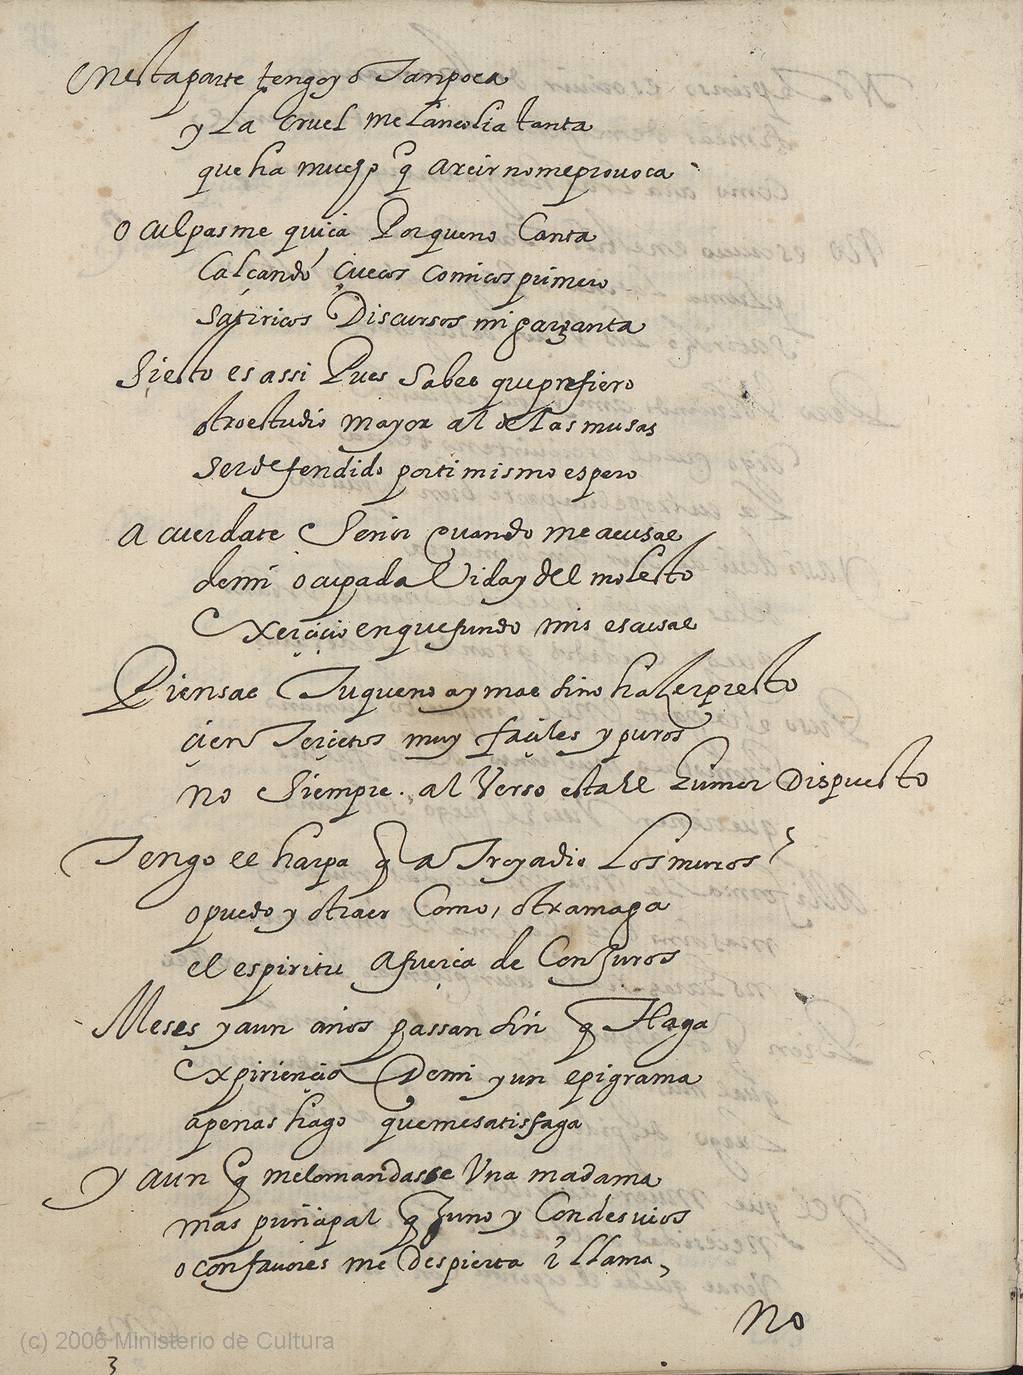 enesta parte tengo yo Tan poca
y La cruel melancolia tanta
que ha mucho q̃ a reir no me prouoca
o culpasme quiça Porque no Canta
Calçando çuecos comicos primero
Satiricos Discursos mi garganta
Si esto es assi Pues Sabes que prefiero
otro estudio mayor al de las musas
ser defendido por ti mismo espero
a cuerdate Señor quando me acusas
de mi ocupada Vida y del molesto
Exerçiçio en que fundo mis escusas
Piensas Tu que no ay mas sino hazer presto
çien Terçetos muy façiles y puros
no Siempre al Verso esta el humor Dispuesto
Tengo el harpa q̃ a Troya dio Los muros?
o puedo yo traer Como otra maga
el espiritu a fuerça de Conjuros
Meses y aun años passan sin q̃ Haga
Expiriençia De mi y un epigrama
apenas hago que me satisfaga
Y aun q̃ me lo mandasse Una madama
mas prinçipal q̃ Juno y Con desuios
o con fauores me Despierta i llama,
no
(c) 2006 Ministerio de Cultura
3